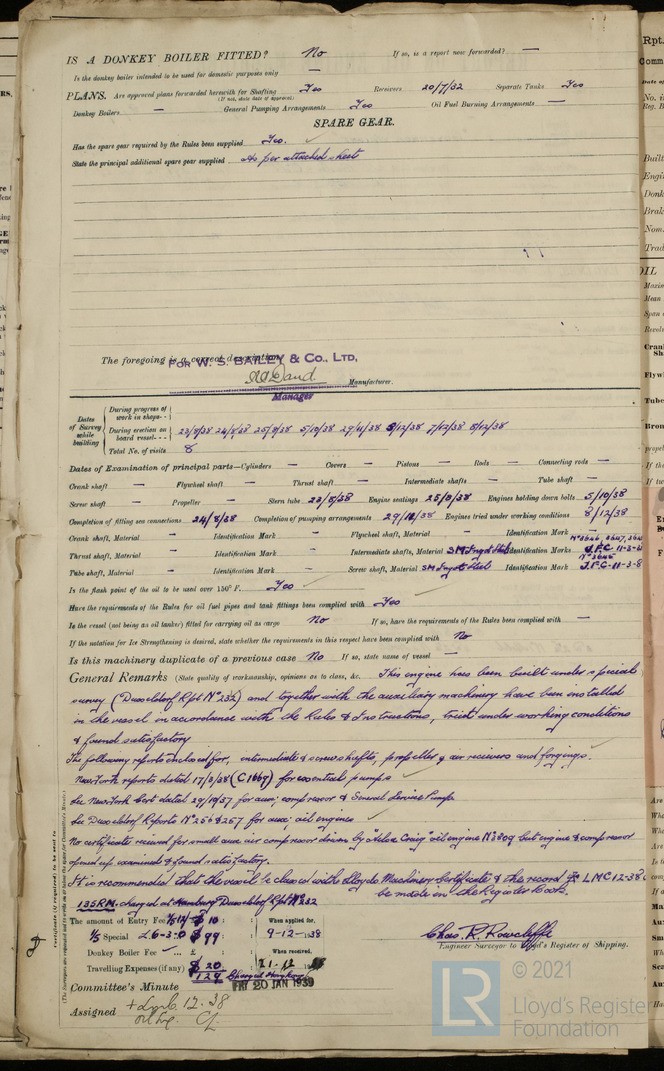 IS A DONKEY BOILER FITTED? No If so, is a report now forwarded? —
Is the donkey boiler intended to be used for domestic purposes only —
PLANS. Are approved plans forwarded herewith for Shafting Yes Receivers 20/7/32 Separate Tanks Yes
(If not, state date of approval)
Donkey Boilers — General Pumping Arrangements Yes Oil Fuel Burning Arrangements —
SPARE GEAR.
Has the spare gear required by the Rules been supplied Yes.
State the principal additional spare gear supplied As per attached sheet
The foregoing is a correct description
FOR W. S. BAILEY & CO., LTD,
Manufacturer.
Manager
Dates of Survey while building
During progress of work in shops - -
During erection on board vessel - - - 23/8/38 24/8/38 25/8/38 5/10/38 29/11/38 5/12/38 7/12/38 8/12/38
Total No. of visits 8
Dates of Examination of principal parts—Cylinders — Covers — Pistons — Rods — Connecting rods —
Crank shaft — Flywheel shaft — Thrust shaft — Intermediate shafts — Tube shaft —
Screw shaft — Propeller — Stern tube 23/8/38 Engine seatings 25/8/38 Engines holding down bolts 5/10/38
Completion of fitting sea connections 24/8/38 Completion of pumping arrangements 29/11/38 Engines tried under working conditions 8/12/38
Crank shaft, Material — Identification Mark — Flywheel shaft, Material — Identification Mark —
Thrust shaft, Material — Identification Mark — Intermediate shafts, Material SM Ingot Steel Identification Marks
Tube shaft, Material — Identification Mark — Screw shaft, Material SM Ingot Steel Identification Mark
Is the flash point of the oil to be used over 150° F. Yes
Have the requirements of the Rules for oil fuel pipes and tank fittings been complied with Yes
Is the vessel (not being an oil tanker) fitted for carrying oil as cargo No If so, have the requirements of the Rules been complied with —
If the notation for Ice Strengthening is desired, state whether the requirements in this respect have been complied with No
Is this machinery duplicate of a previous case No If so, state name of vessel —
General Remarks (State quality of workmanship, opinions as to class, &c. This engine has been built under special
survey (Dusseldorf Rpt No 232) and together with the auxiliary machinery have been installed
in the vessel in accordance with the Rules & Instructions, tried under working conditions
& found satisfactory
The following reports enclosed for, intermediate & screwshafts, propeller & air receivers and forgings.
New York reports dated 17/3/38 (C1669) for essential pumps
See New York Cert dated 29/10/37 for aux: compressor & General Service Pump
See Dusseldorf Reports No 256 & 257 for aux: oil engines
No certificate received for small aux air compressor driven by "Ailsa Craig" oil engine No 3809 but engine & compressor
opened up examined & found satisfactory.
It is recommended that the vessel be classed with Lloyds Machinery Certificate & the record LMC 12-38
be made in the Register Book.
135RM. charged at Hamburg Dusseldorf Rpt No 232
The amount of Entry Fee $ 10 : When applied for,
1/5 Special £6-3-0 $ 99 : 9-12-1938
Donkey Boiler Fee ... £ : When received,
Travelling Expenses (if any) $ 20
129
Chas. R. Rowcliffe
Engineer Surveyor to Lloyd's Register of Shipping.
Committee's Minute FRI 20 JAN 1939
Assigned + 12.38
© 2021
LR
Lloyd's Register
Foundation